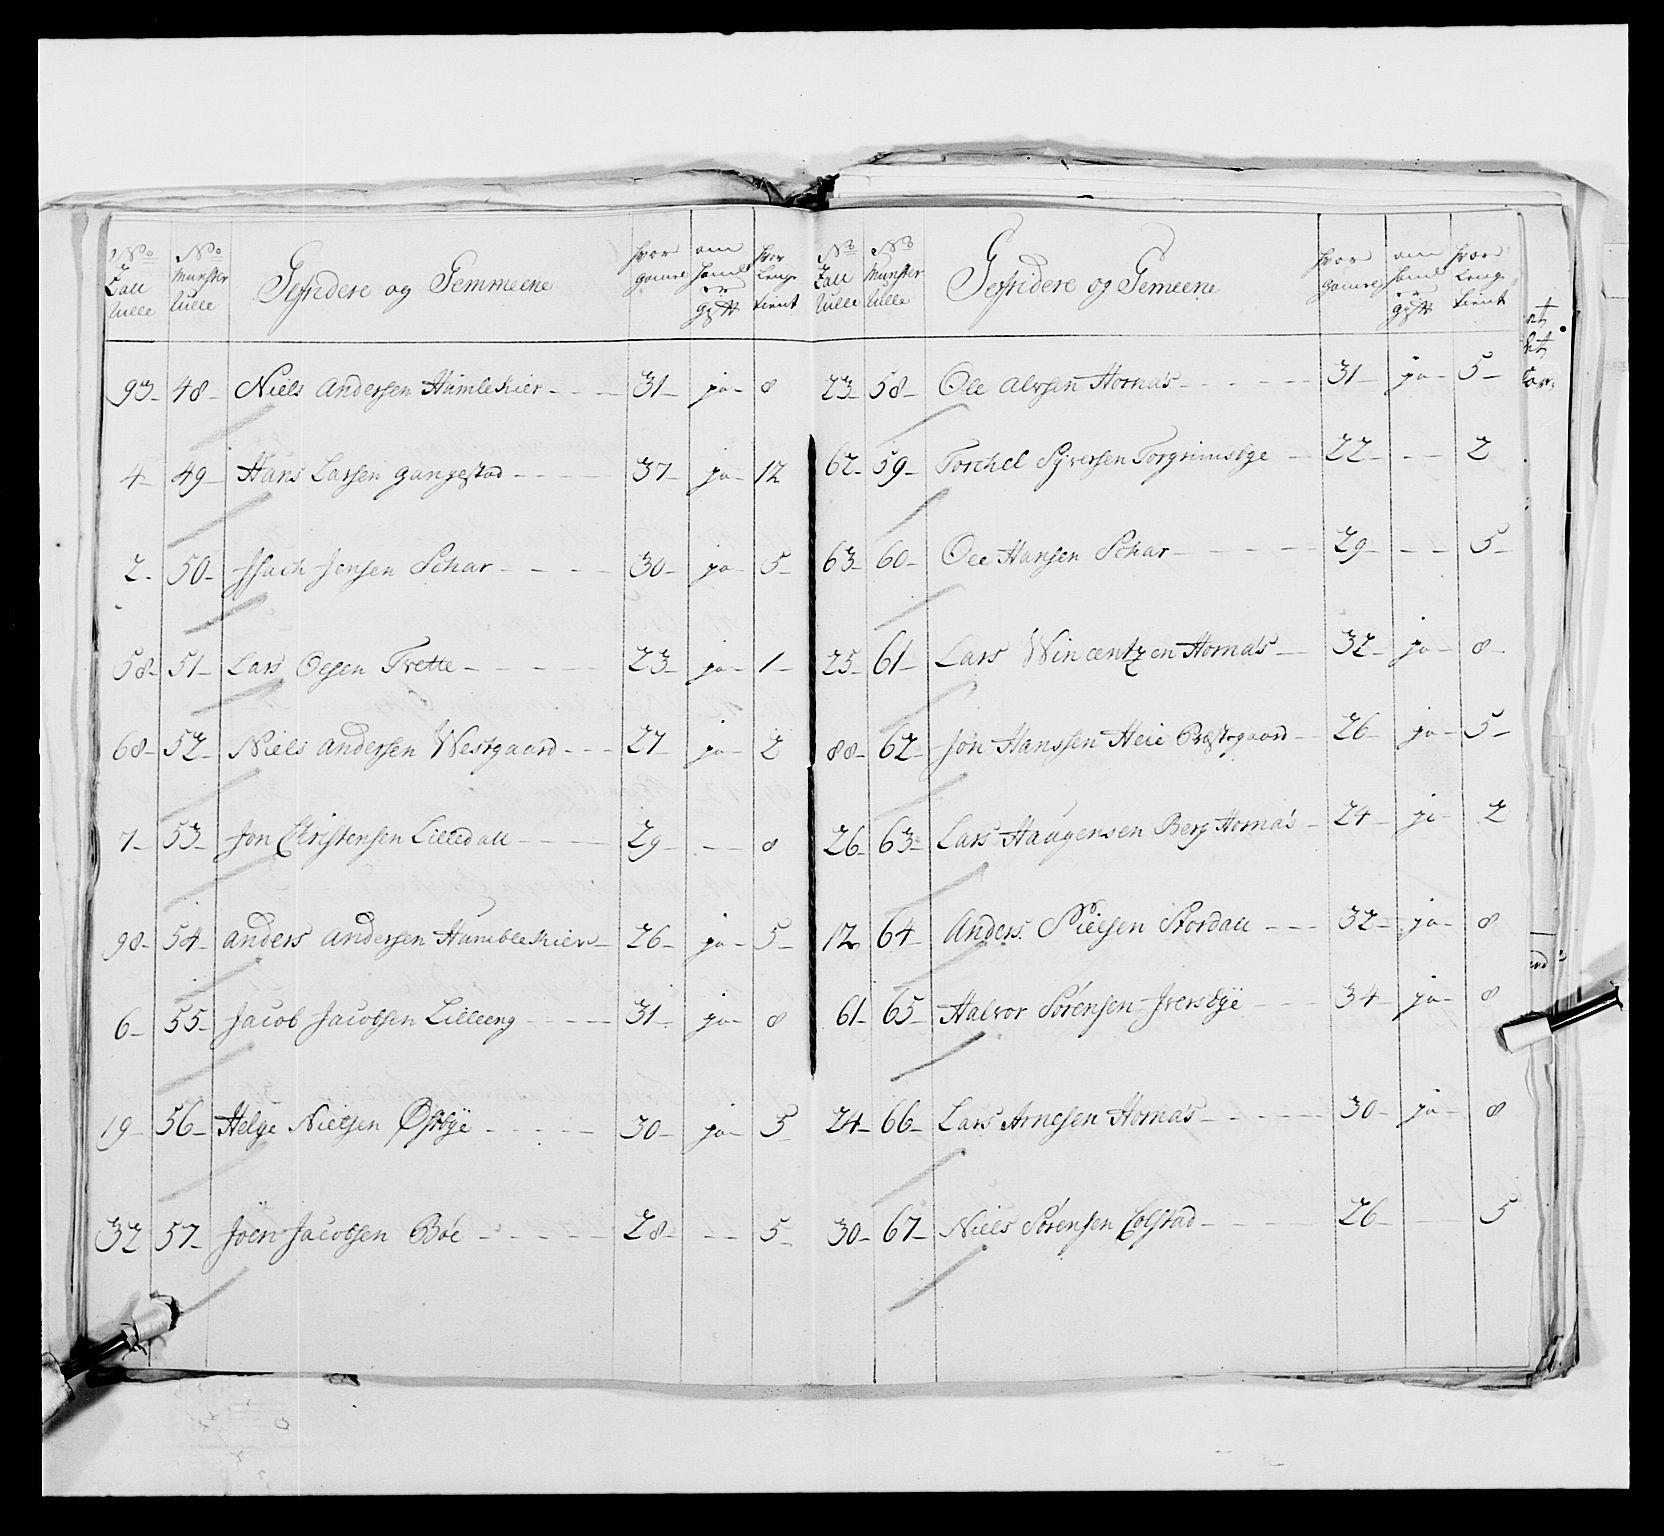 No Zall Rulle | No Munster Rulle | Gefridere og Gemmeene | hvor gamel | om hand er gift | hvor lenge tient
93 48 Niels Andersen Humlekier 31 ja 8
4 49 Hans Larsen Gangestad 37 ja 12
2 50 Isach Jensen Schar 30 ja 5
58 51 Lars Olsen Tvette 23 ja 1
68 52 Niels Andersen Westgaard 27 ja 2
7 53 Jon Christensen Lilledall 29 - 8
98 54 Anders Andersen Humblekier 26 ja 5
6 55 Jacob Jacobsen Lilleeng 31 ja 8
19 56 Helge Nielsen Østbye 30 ja 5
32 57 Joen Jacobsen Bøe 28 - 5
No Zall Rulle | No Munster Rulle | Gefridere og Gemeene | hvor gamel | om hand er gift | hvor lenge tient
23 58 Ole Alvsen Hornæs 31 ja 5
62 59 Torchel Syversen Torgrimsbye 22 - 2
63 60 Ole Hansen Schar 29 - 5
25 61 Lars Wincentzen Hornæs 32 ja 8
88 62 Jon Hanssen Heie Præstegaard 26 ja 5
26 63 Lars Haagensen Berg Hornæs 24 ja 2
12 64 Anders Nielsen Stordall 32 ja 8
61 65 Halvor Sørensen Iversbye 34 ja 8
24 66 Lars Arnesen Hornæs 30 ja 8
30 67 Niels Sørensen Colstad 26 - 5